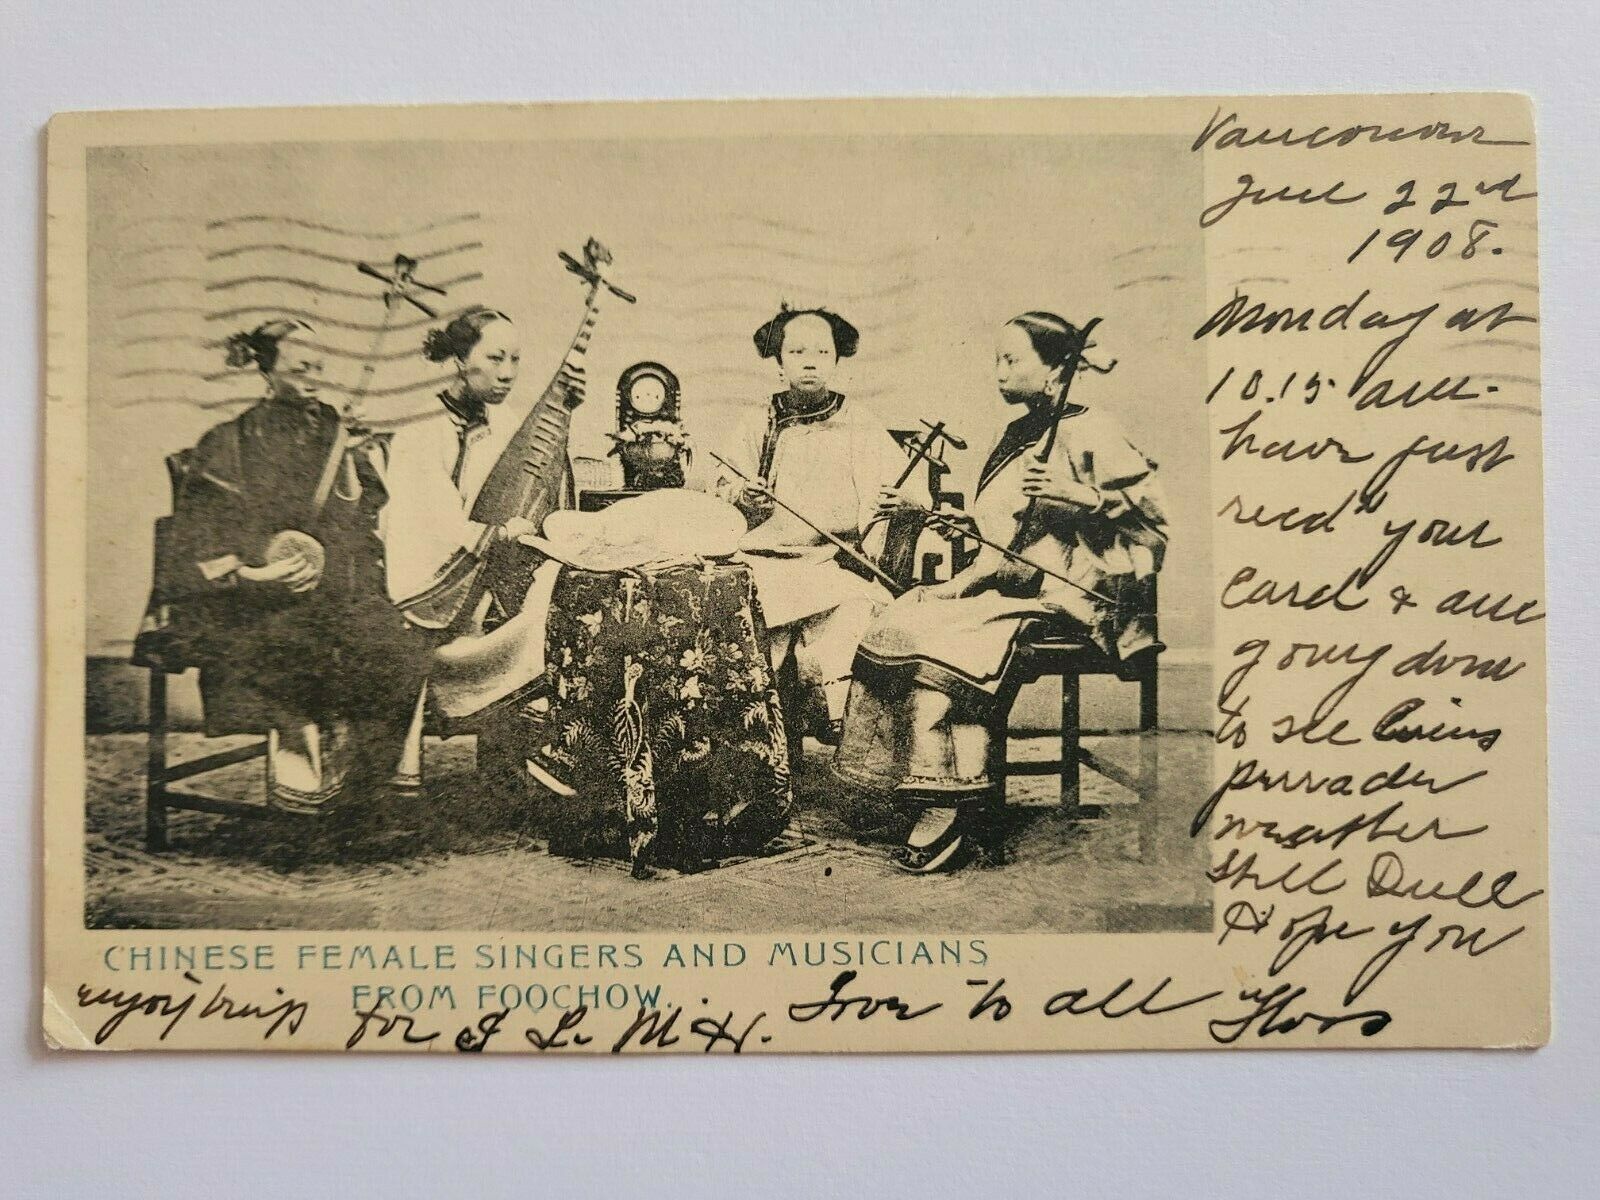 CHINESE FEMALE SINGERS AND MUSICIANS
FROM FOOCHOW.
Vancouver
June 22nd
1908.
Monday at
10.15 am.
have just
recd your
Card & am
going down
to see
weather
Still Dull
Hope you
enjoy trip for J L. M & H. Love to all Floss